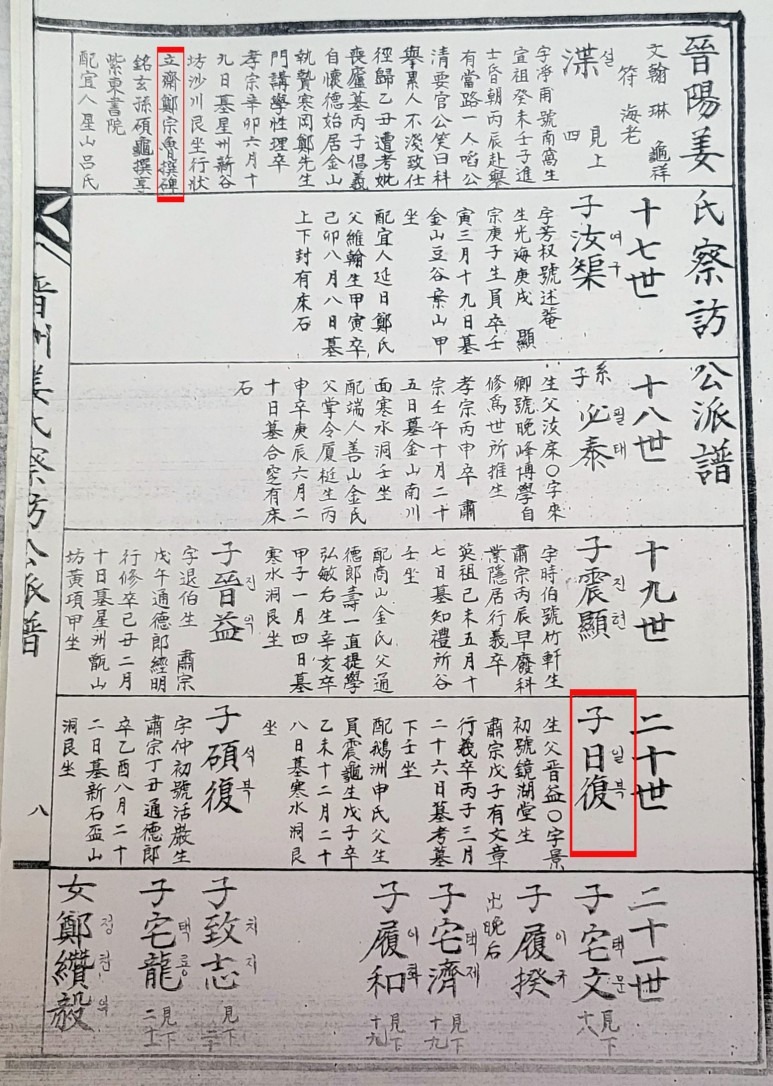 晉陽姜氏察訪公派譜
文翰 琳 龜祥
符 海老
渫 설
見上
四
字淨甫號南窩生
宣祖癸未壬子進
士昏朝丙辰赴擧
有當路一人啗公
清要官公笑曰科
擧累人不淺致仕
徑歸乙丑遭考妣
喪廬墓丙子倡義
自懷德始居金山
執贄寒岡鄭先生
門講學性理卒
孝宗辛卯六月十
九日墓星州薪谷
坊沙川艮坐行狀
立齋鄭宗魯撰碑
銘玄孫碩龜撰享
紫東書院
配宜人星山呂氏
十七世
子汝榘 여구
字芳叔號述菴
生光海庚戌 顯
宗庚子生員卒壬
寅三月十九日墓
金山豆谷案山甲
坐
配宜人延日鄭氏
父維翰生甲寅卒
己卯八月八日墓
上下封有床石
十八世
系子 必泰 필태
生父汝㡳○字來
卿號晩峰博學自
修爲世所推生
孝宗丙申卒 肅
宗壬午十月二十
五日墓金山南川
面寒水洞壬坐
配端人善山金氏
父掌令厦梃生丙
申卒庚辰六月二
十日墓合窆有床
石
十九世
子震顯 진현
字時伯號竹軒生
肅宗丙辰早廢科
業隱居行義卒
英祖己未五月十
七日墓知禮所谷
壬坐
配商山金氏父通
德郎壽一直提學
弘敏后生辛亥卒
甲子一月四日墓
寒水洞艮坐
子晉益 진익
字退伯生 肅宗
戊午通德郎經明
行修卒己丑二月
十日墓星州甑山
坊黃項甲坐
二十世
子日復 일복
生父晉益○字景
初號鏡湖堂生
肅宗戊子有文章
行義卒丙子三月
二十六日墓考墓
下壬坐
配鵝洲申氏父生
員震龜生戊子卒
乙未十二月二十
八日墓寒水洞艮
坐
子碩復 석복
字仲初號活巖生
肅宗丁丑通德郎
卒乙酉八月二十
二日墓新石盃山
洞艮坐
二十一世
子宅文 택문
見下十八
子履揆 이규
出晩后
子宅濟 택제
見下十九
子履和 이화
見下十九
子致志 치지
見下二十
子宅龍 택룡
見下二十一
女鄭纘毅
晋州姜氏察訪公派譜
八